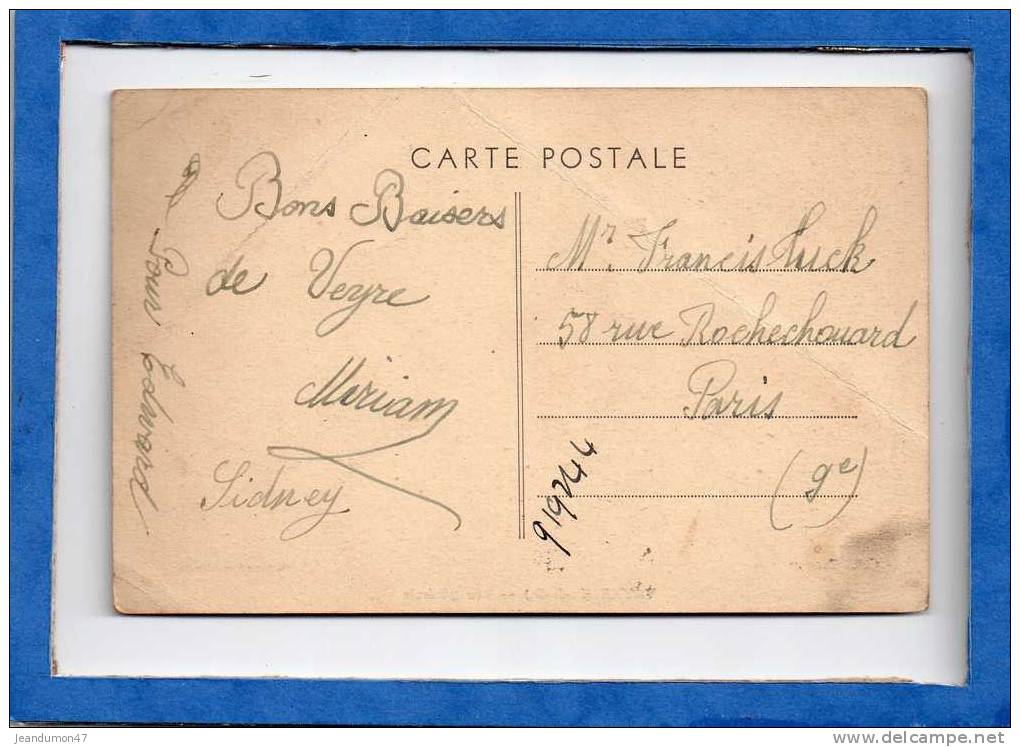 CARTE POSTALE
Bons Baisers
de Veyre
Miriam
Sidney
Edward
Mr. Francis Huck
58 rue Rochechouard
Paris
(9e)
919244
jeandumon47
www.delcampe.net